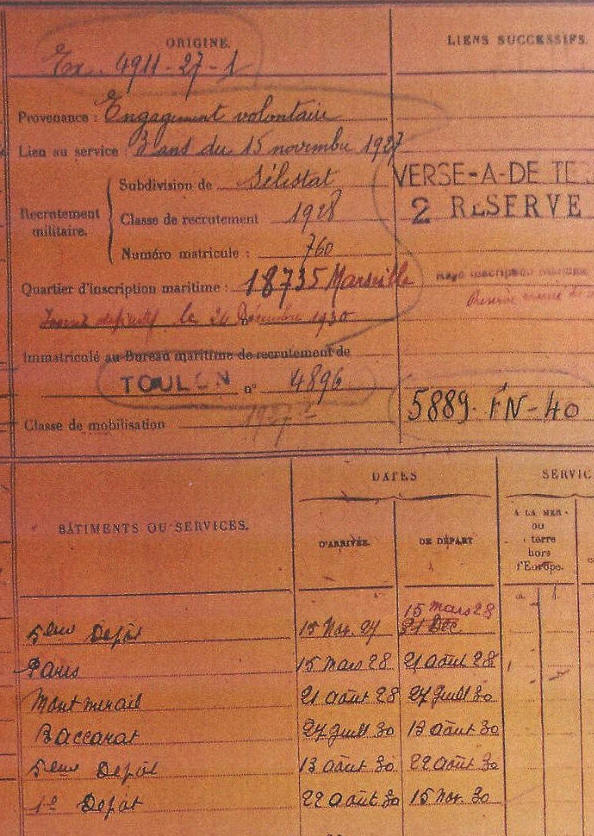 ORIGINE.
LIENS SUCCESSIFS.
Ex. 4911-27-1
Provenance : Engagement volontaire
Lien au service : 3 ans du 15 novembre 1927
Recrutement militaire.
Subdivision de Sélestat
Classe de recrutement 1928
Numéro matricule : 760
VERSE-A-DE TE
2 RESERVE
Quartier d'inscription maritime : 18735 Marseille
le 24 Décembre 1930
Immatriculé au Bureau maritime de recrutement de
TOULON n° 4896
Classe de mobilisation 1927
5889. FN-40
BÂTIMENTS OU SERVICES.
DATES
D'ARRIVÉE.
DE DÉPART
SERVIC
A LA MER
ou
terre
hors
l'Europe.
15 Mars 28
5eme Depôt 15 Nov. 27 21 Dec
Paris 15 Mars 28 21 août 28
Montmirail 21 août 28 27 Juill 30
Baccarat 27 Juill 30 13 août 30
5eme Depôt 13 août 30 22 août 30
1e Depôt 22 août 30 15 Nov. 30